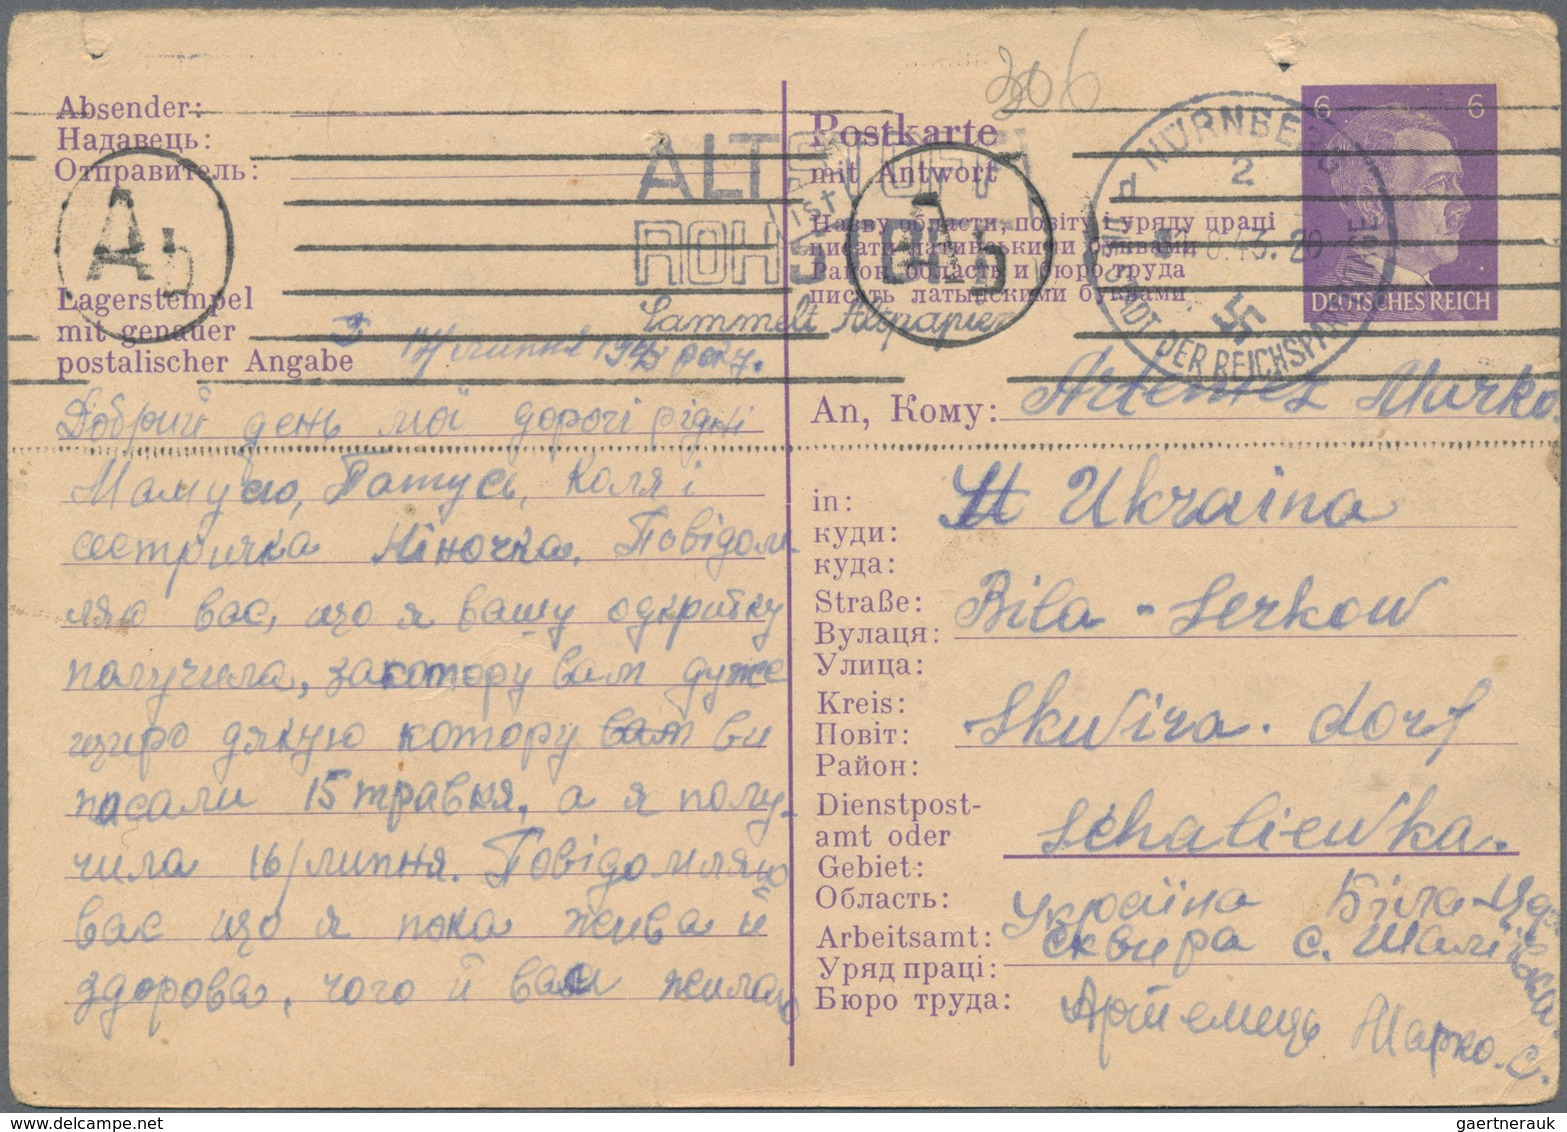 306
Absender:
Надавець:
Отправитель:
Lagerstempel
mit genauer
postalischer Angabe
A
b
17/ липня 1943 року.
Добрий день мої дорогі рідні
Мамусю, Татусь, Коля і
сестричка Ніночка. Повідом-
ляю вас, що я вашу одкритку
получила, закотору вам дуже
щиро дякую котору вам ви
писали 15 травня, а я полу-
чила 16/липня. Повідомляю
вас що я пока жива й
здорова, чого й вам жилаю
ALTSTOFF
ist
ROHSTOFF
Sammelt Altpapier
A
b
Postkarte
mit Antwort
Назву области, повіту і уряду праці
писати латинськими буквами
Район, область и бюро труда
писать латынскими буквами
NÜRNBERG
2
d
8.43. 20
STADT DER REICHSPARTEITAGE
6 6
DEUTSCHES REICH
An, Кому: Artemez Marko
in: Ukraina
куди:
куда:
Straße: Bila - Serkow
Вулаця:
Улица:
Kreis: Skwira. dorf
Повіт:
Район:
Dienstpost-
amt oder Schaliewka.
Gebiet:
Область: Україна Біла-Цер
Arbeitsamt: сквира с. Шаліївка
Уряд праці:
Бюро труда: Артемець Марко. С.
gaertnerauk / www.delcampe.net